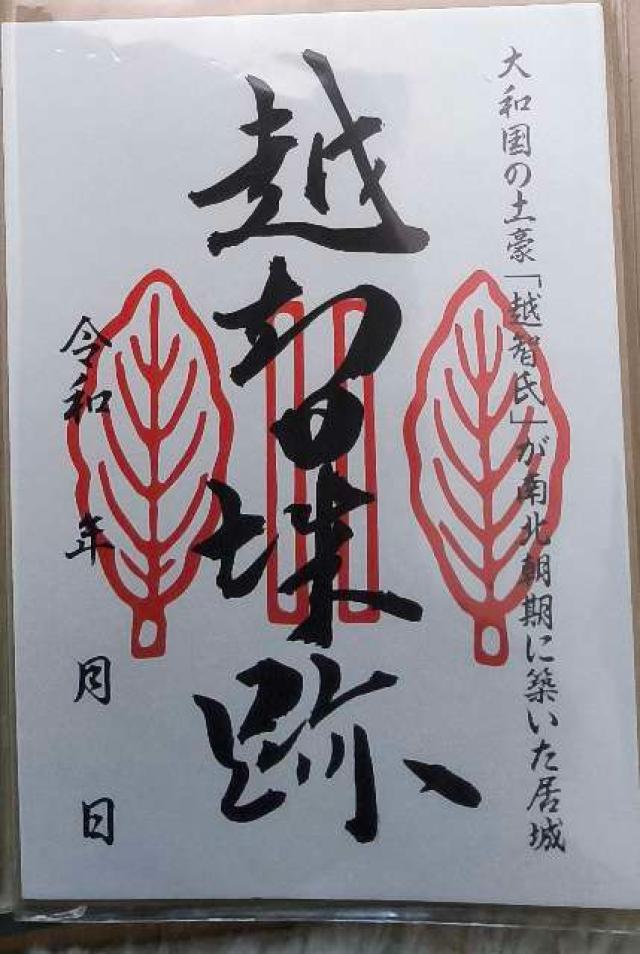 大和国の土豪「越智氏」が南北朝期に築いた居城
越智城跡
令和 年 月 日